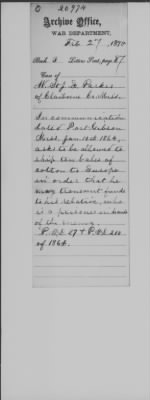 20974
Archive Office,
WAR DEPARTMENT,
Feb. 27, 1874
Book Letters Sent, page 87
Case of
Parker
of Claiborne Co. Miss.
In communication
dated Port Gibson
Miss. Jan. 1864,
asks to be allowed to
ship ten bales of
cotton to Europe
in order that he
may transmit funds
to his relative, who
is a prisoner in hands
of the enemy.
of 1864.